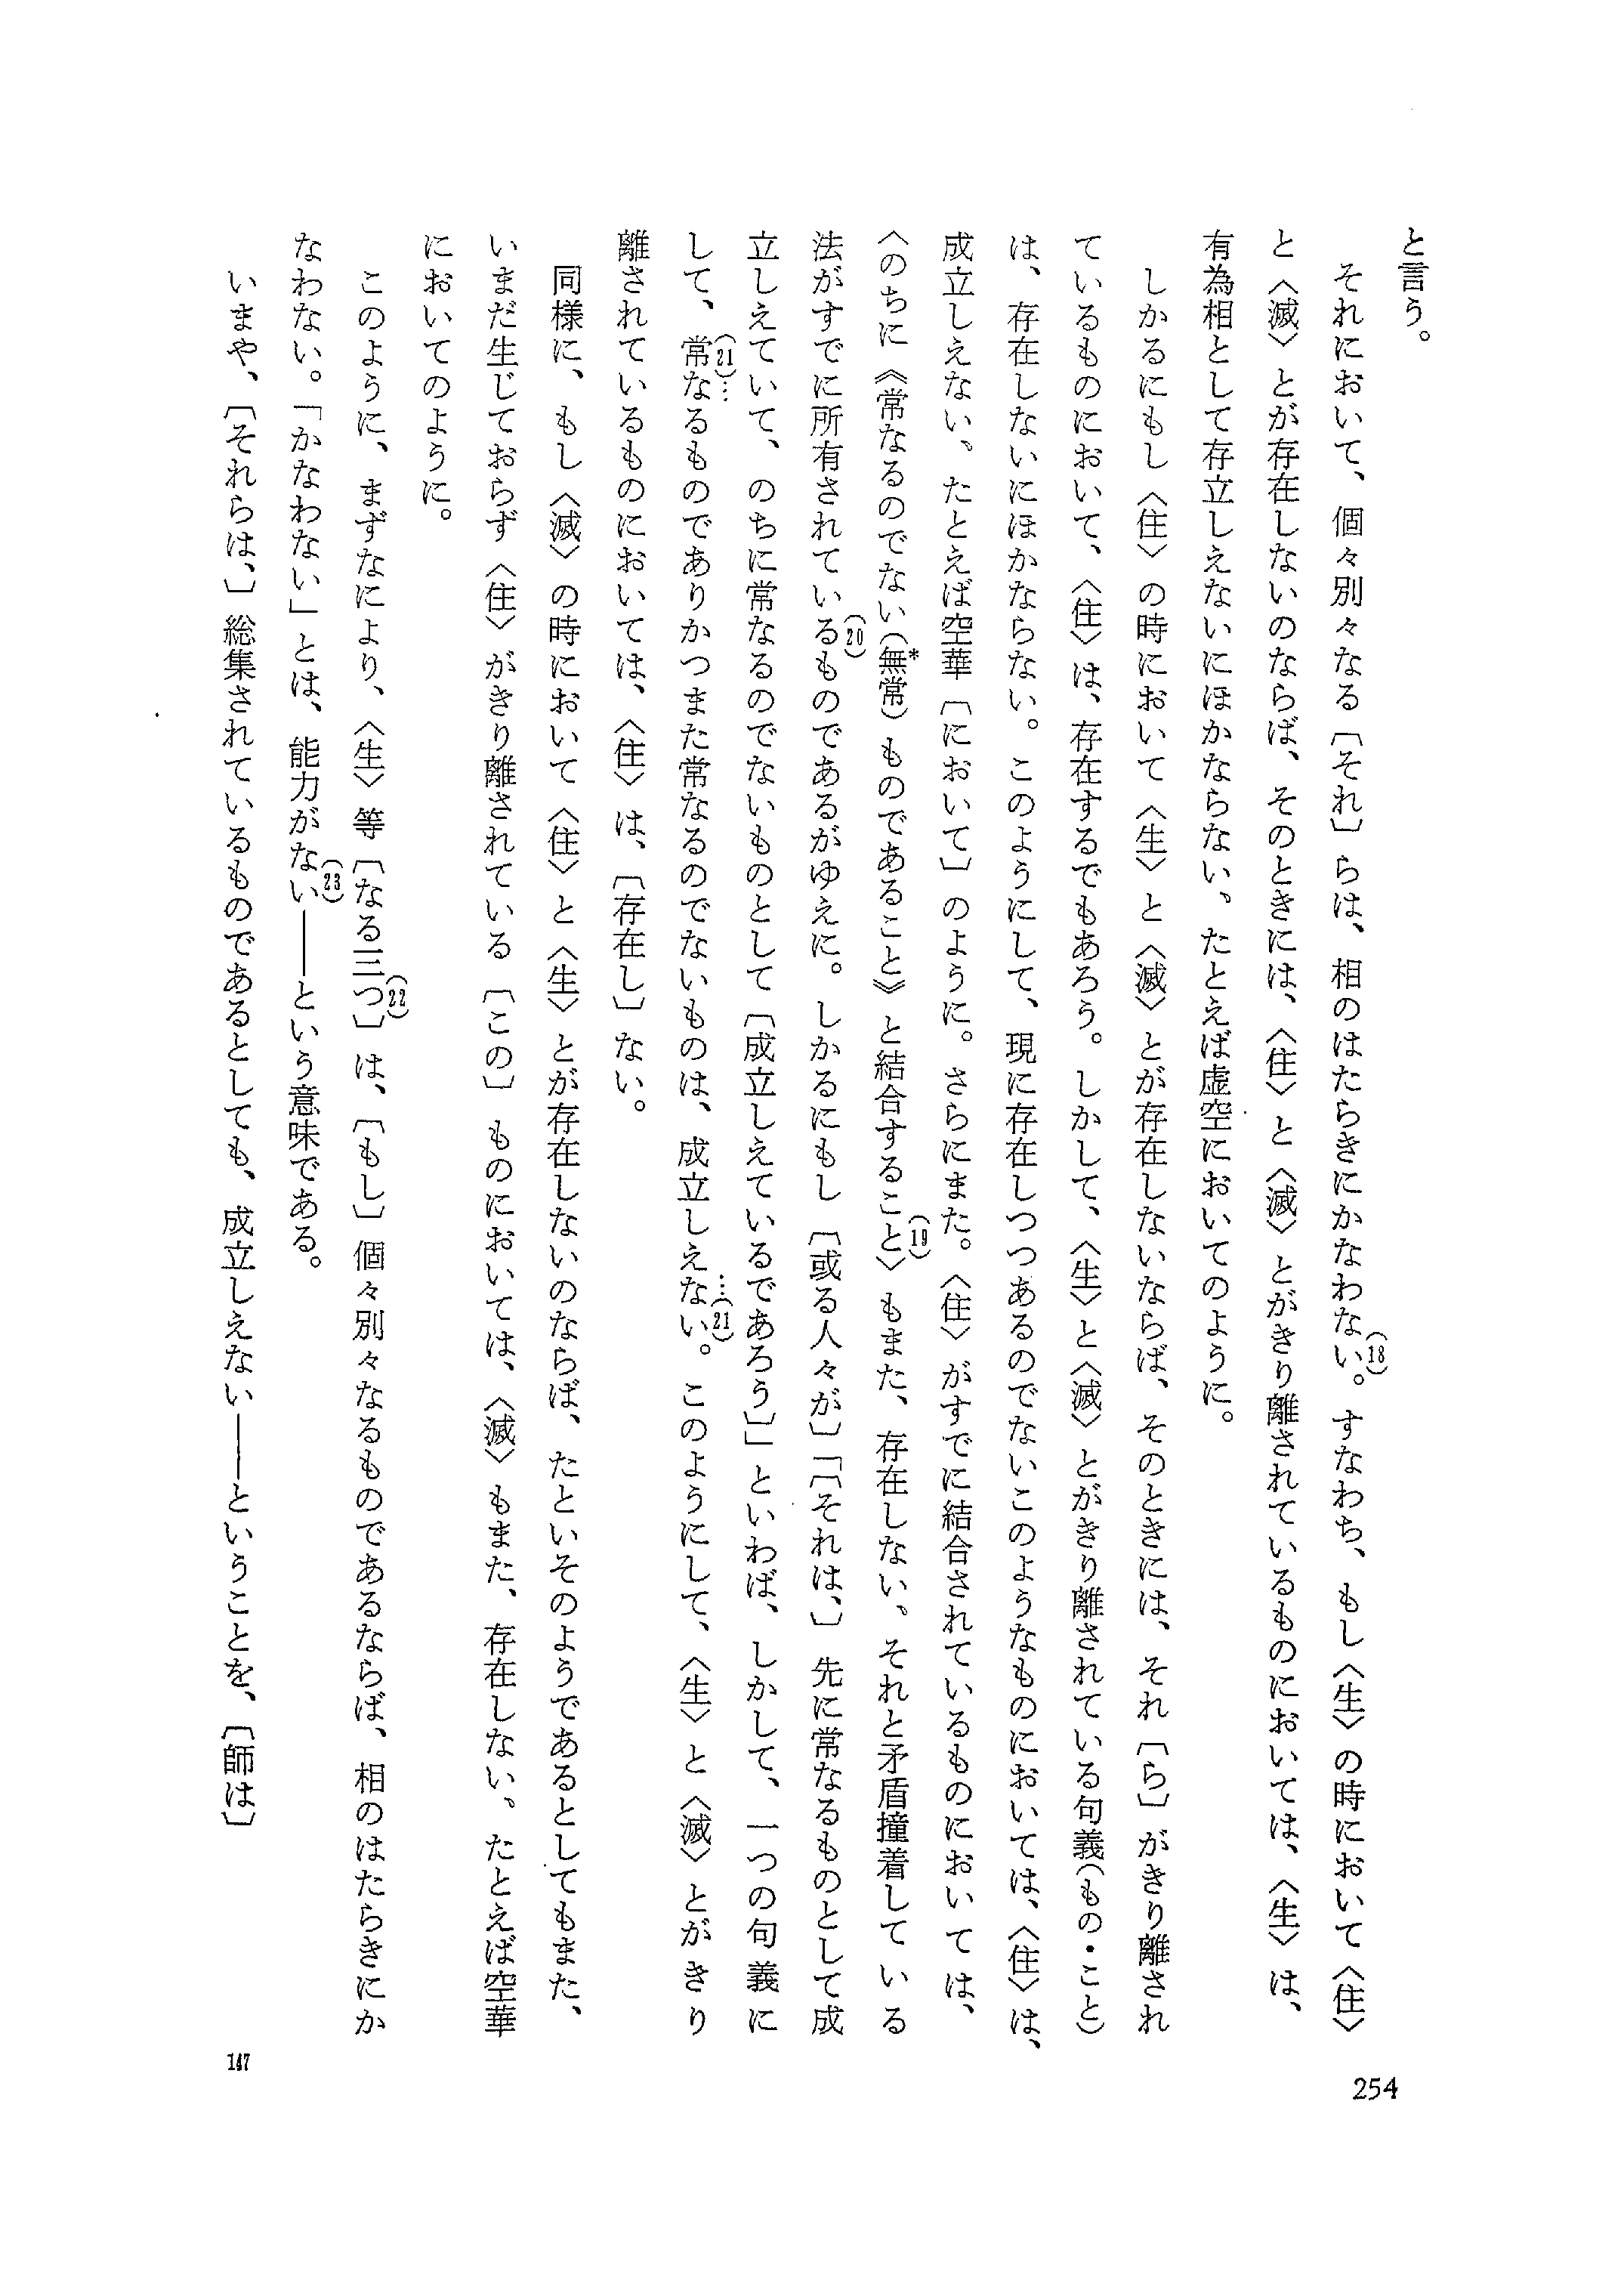 と言う。
それにおいて、個々別々なる〔それ〕らは、相のはたらきにかなわない(18)。すなわち、もし〈生〉の時において〈住〉
と〈滅〉とが存在しないのならば、そのときには、〈住〉と〈滅〉とがきり離されているものにおいては、〈生〉は、
有為相として存立しえないにほかならない、たとえば虚空においてのように。
しかるにもし〈住〉の時において〈生〉と〈滅〉とが存在しないならば、そのときには、それ〔ら〕がきり離され
ているものにおいて、〈住〉は、存在するでもあろう。しかして、〈生〉と〈滅〉とがきり離されている句義(もの・こと)
は、存在しないにほかならない。このようにして、現に存在しつつあるのでないこのようなものにおいては、〈住〉は、
成立しえない、たとえば空華〔において〕のように。さらにまた。〈住〉がすでに結合されているものにおいては、
〈のちに《常なるのでない(無*常)ものであること》と結合すること(19)〉もまた、存在しない、それと矛盾撞着している
法がすでに所有されているも(20)のであるがゆえに。しかるにもし〔或る人々が〕「〔それは、〕先に常なるものとして成
立しえていて、のちに常なるのでないものとして〔成立しえているであろう〕」といわば、しかして、一つの句義に
して、(21)…常なるものでありかつまた常なるのでないものは、成立しえない…(21)。このようにして、〈生〉と〈滅〉とがきり
離されているものにおいては、〈住〉は、〔存在し〕ない。
同様に、もし〈滅〉の時において〈住〉と〈生〉とが存在しないのならば、たといそのようであるとしてもまた、
いまだ生じておらず〈住〉がきり離されている〔この〕ものにおいては、〈滅〉もまた、存在しない、たとえば空華
においてのように。
このように、まずなにより、〈生〉等〔なる三つ(22)〕は、〔もし〕個々別々なるものであるならば、相のはたらきにか
なわない。「かなわない」とは、能力がない(23)――という意味である。
いまや、〔それらは、〕総集されているものであるとしても、成立しえない――ということを、〔師は〕
147
254